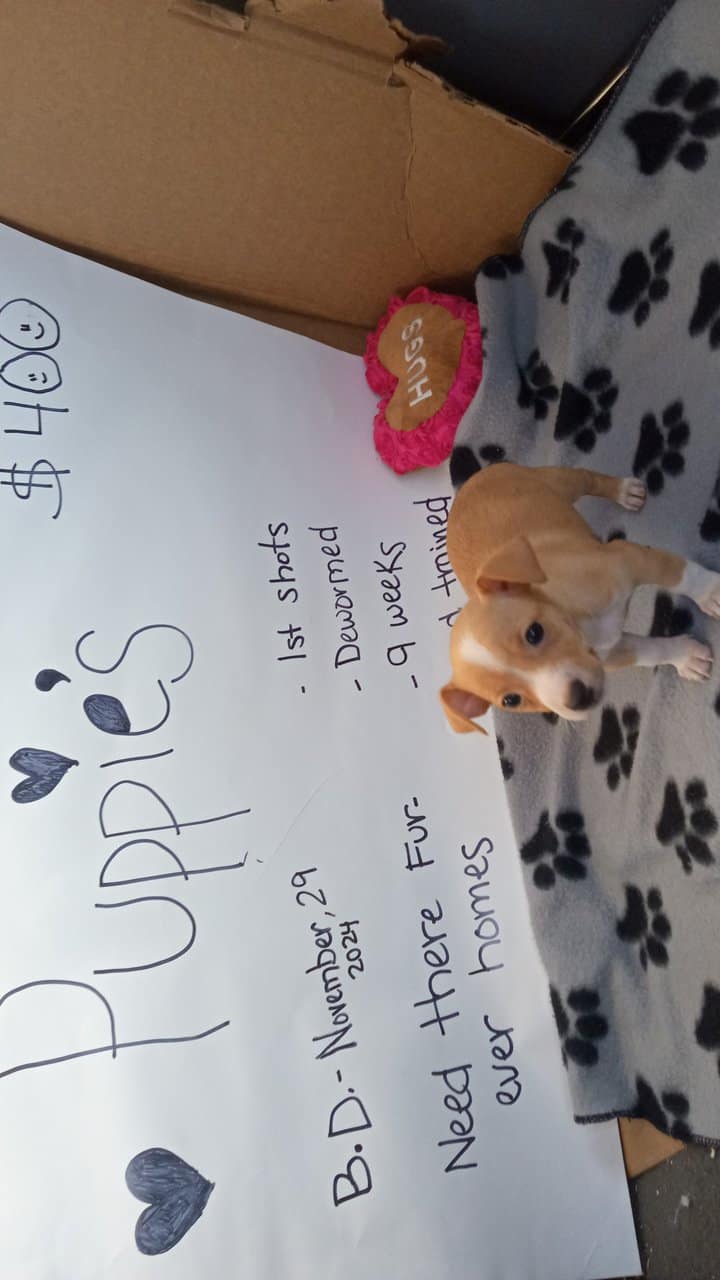 Puppie's
$400
B.D.- November, 29
2024
Need there Fur-
ever homes
- 1st shots
- Dewormed
- 9 weeks
trained
HUGS